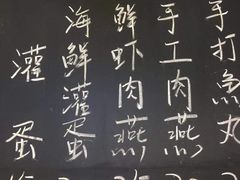 手打魚丸
手工肉燕
鮮虾肉燕
海鮮灌蛋
灌蛋